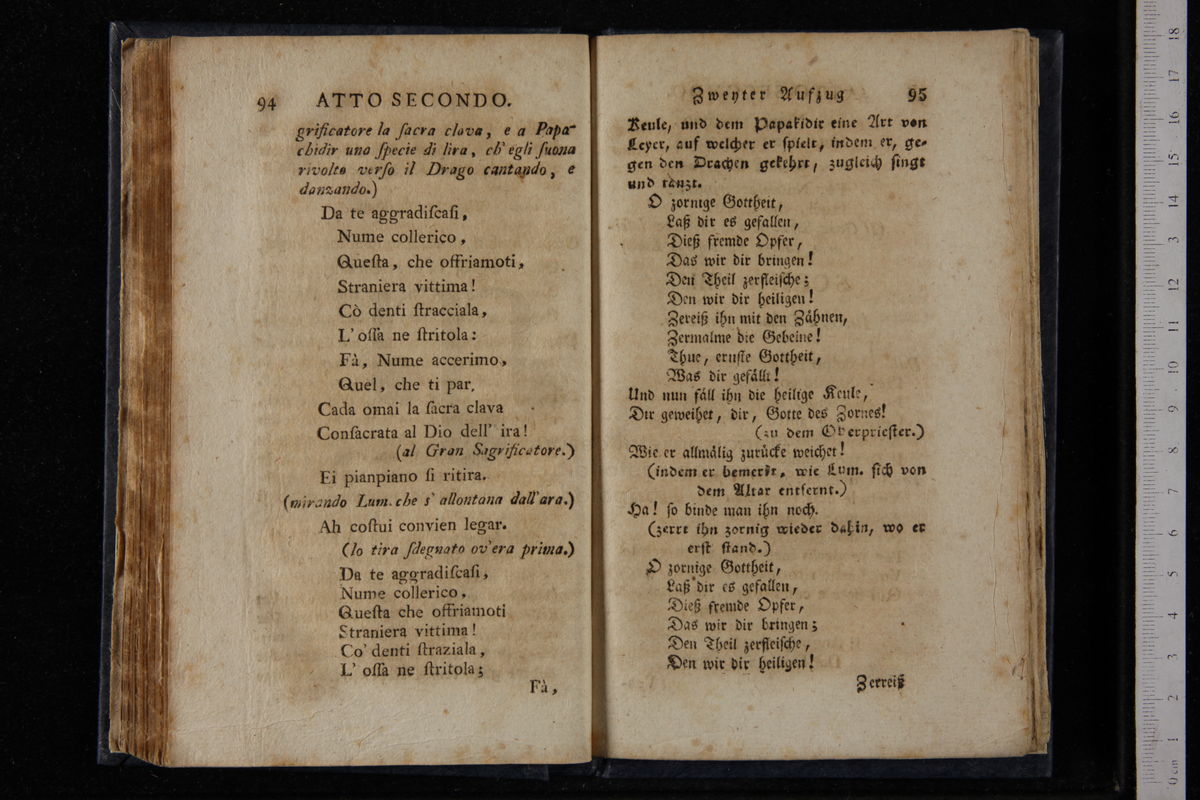 94 ATTO SECONDO.
grificatore la ſacra clava, e a Papa-
chidir una ſpecie di lira, ch' egli ſuona
rivolto verſo il Drago cantando, e
danzando.)
Da te aggradiſcaſi,
Nume collerico,
Queſta, che offriamoti,
Straniera vittima!
Cò denti ſtracciala,
L' oſſa ne ſtritola:
Fà, Nume accerimo,
Quel, che ti par.
Cada omai la ſacra clava
Conſacrata al Dio dell' ira!
(al Gran Sagrificatore.)
Ei pianpiano ſi ritira.
(mirando Lum. che s' allontana dall' ara.)
Ah coſtui convien legar.
(lo tira ſdegnato ov' era prima.)
Da te aggradiſcaſi,
Nume collerico,
Queſta che offriamoti
Straniera vittima!
Co' denti ſtraziala,
L' oſſa ne ſtritola;
Fà,
Zweyter Aufzug 95
Keule, und dem Papakidir eine Art von
Leyer, auf welcher er ſpielt, indem er, ge-
gen den Drachen gekehrt, zugleich ſingt
und tanzt.
O zornige Gottheit,
Laß dir es gefallen,
Dieß fremde Opfer,
Das wir dir bringen!
Den Theil zerfleiſche;
Den wir dir heiligen!
Zereiß ihn mit den Zähnen,
Zermalme die Gebeine!
Thue, ernſte Gottheit,
Was dir gefällt!
Und nun fäll ihn die heilige Keule,
Dir geweihet, dir, Gotte des Zornes!
(zu dem Oberprieſter.)
Wie er allmälig zurücke weichet!
(indem er bemerkt, wie Lum. ſich von
dem Altar entfernt.)
Ha! ſo binde man ihn noch.
(zerrt ihn zornig wieder dahin, wo er
erſt ſtand.)
O zornige Gottheit,
Laß dir es gefallen,
Dieß fremde Opfer,
Das wir dir bringen;
Den Theil zerfleiſche,
Den wir dir heiligen!
Zerreiß
0 cm 1 2 3 4 5 6 7 8 9 10 11 12 13 14 15 16 17 18